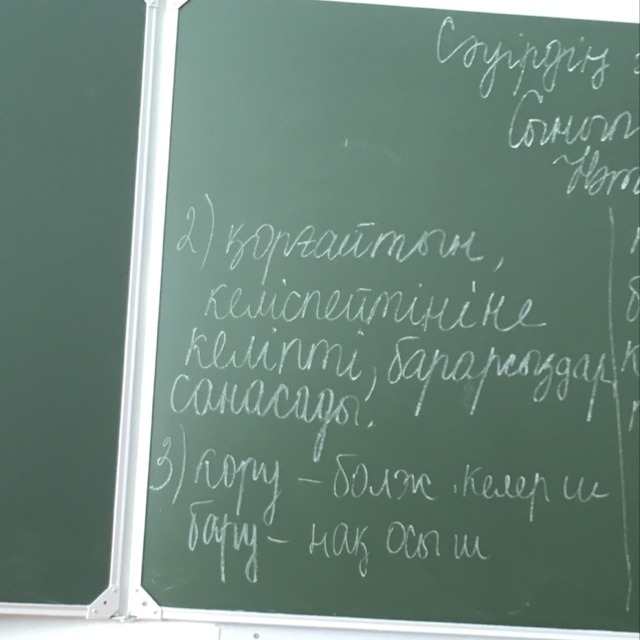 Сәуірдің
Сынып
2) қорғайтын,
келіспейтініне
келіпті, барарсыздар,
санасады.
3) көру – болж. келер ш
бару – нақ осы ш